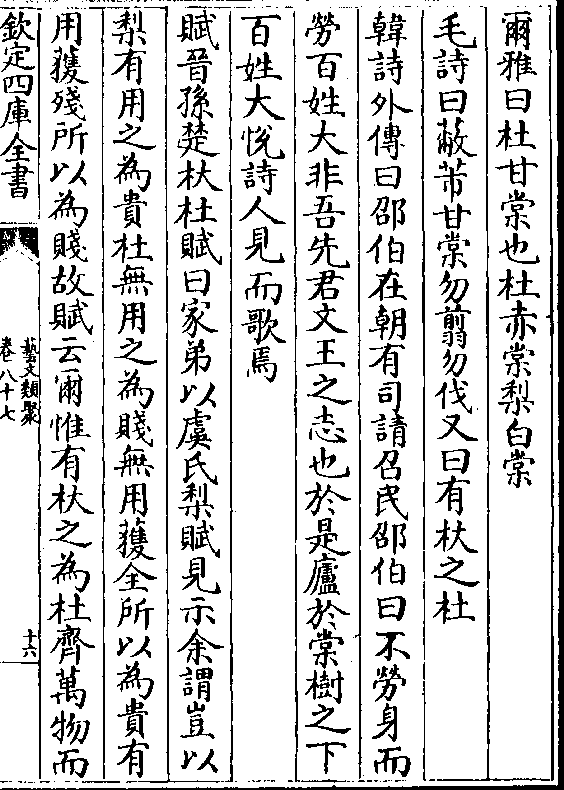 爾雅曰杜甘棠也杜赤棠梨白棠
毛詩曰蔽芾甘棠勿翦勿伐又曰有杕之杜
韓詩外傳曰邵伯在朝有司請召民邵伯曰不勞身而
勞百姓大非吾先君文王之志也於是廬於棠樹之下
百姓大悅詩人見而歌焉
賦晉孫楚杕杜賦曰家弟以虞氏梨賦見示余謂豈以
梨有用之為貴杜無用之為賤無用獲全所以為貴有
用獲殘所以為賤故賦云爾惟有杕之為杜齊萬物而
欽定四庫全書
藝文類聚
卷八十七
十六